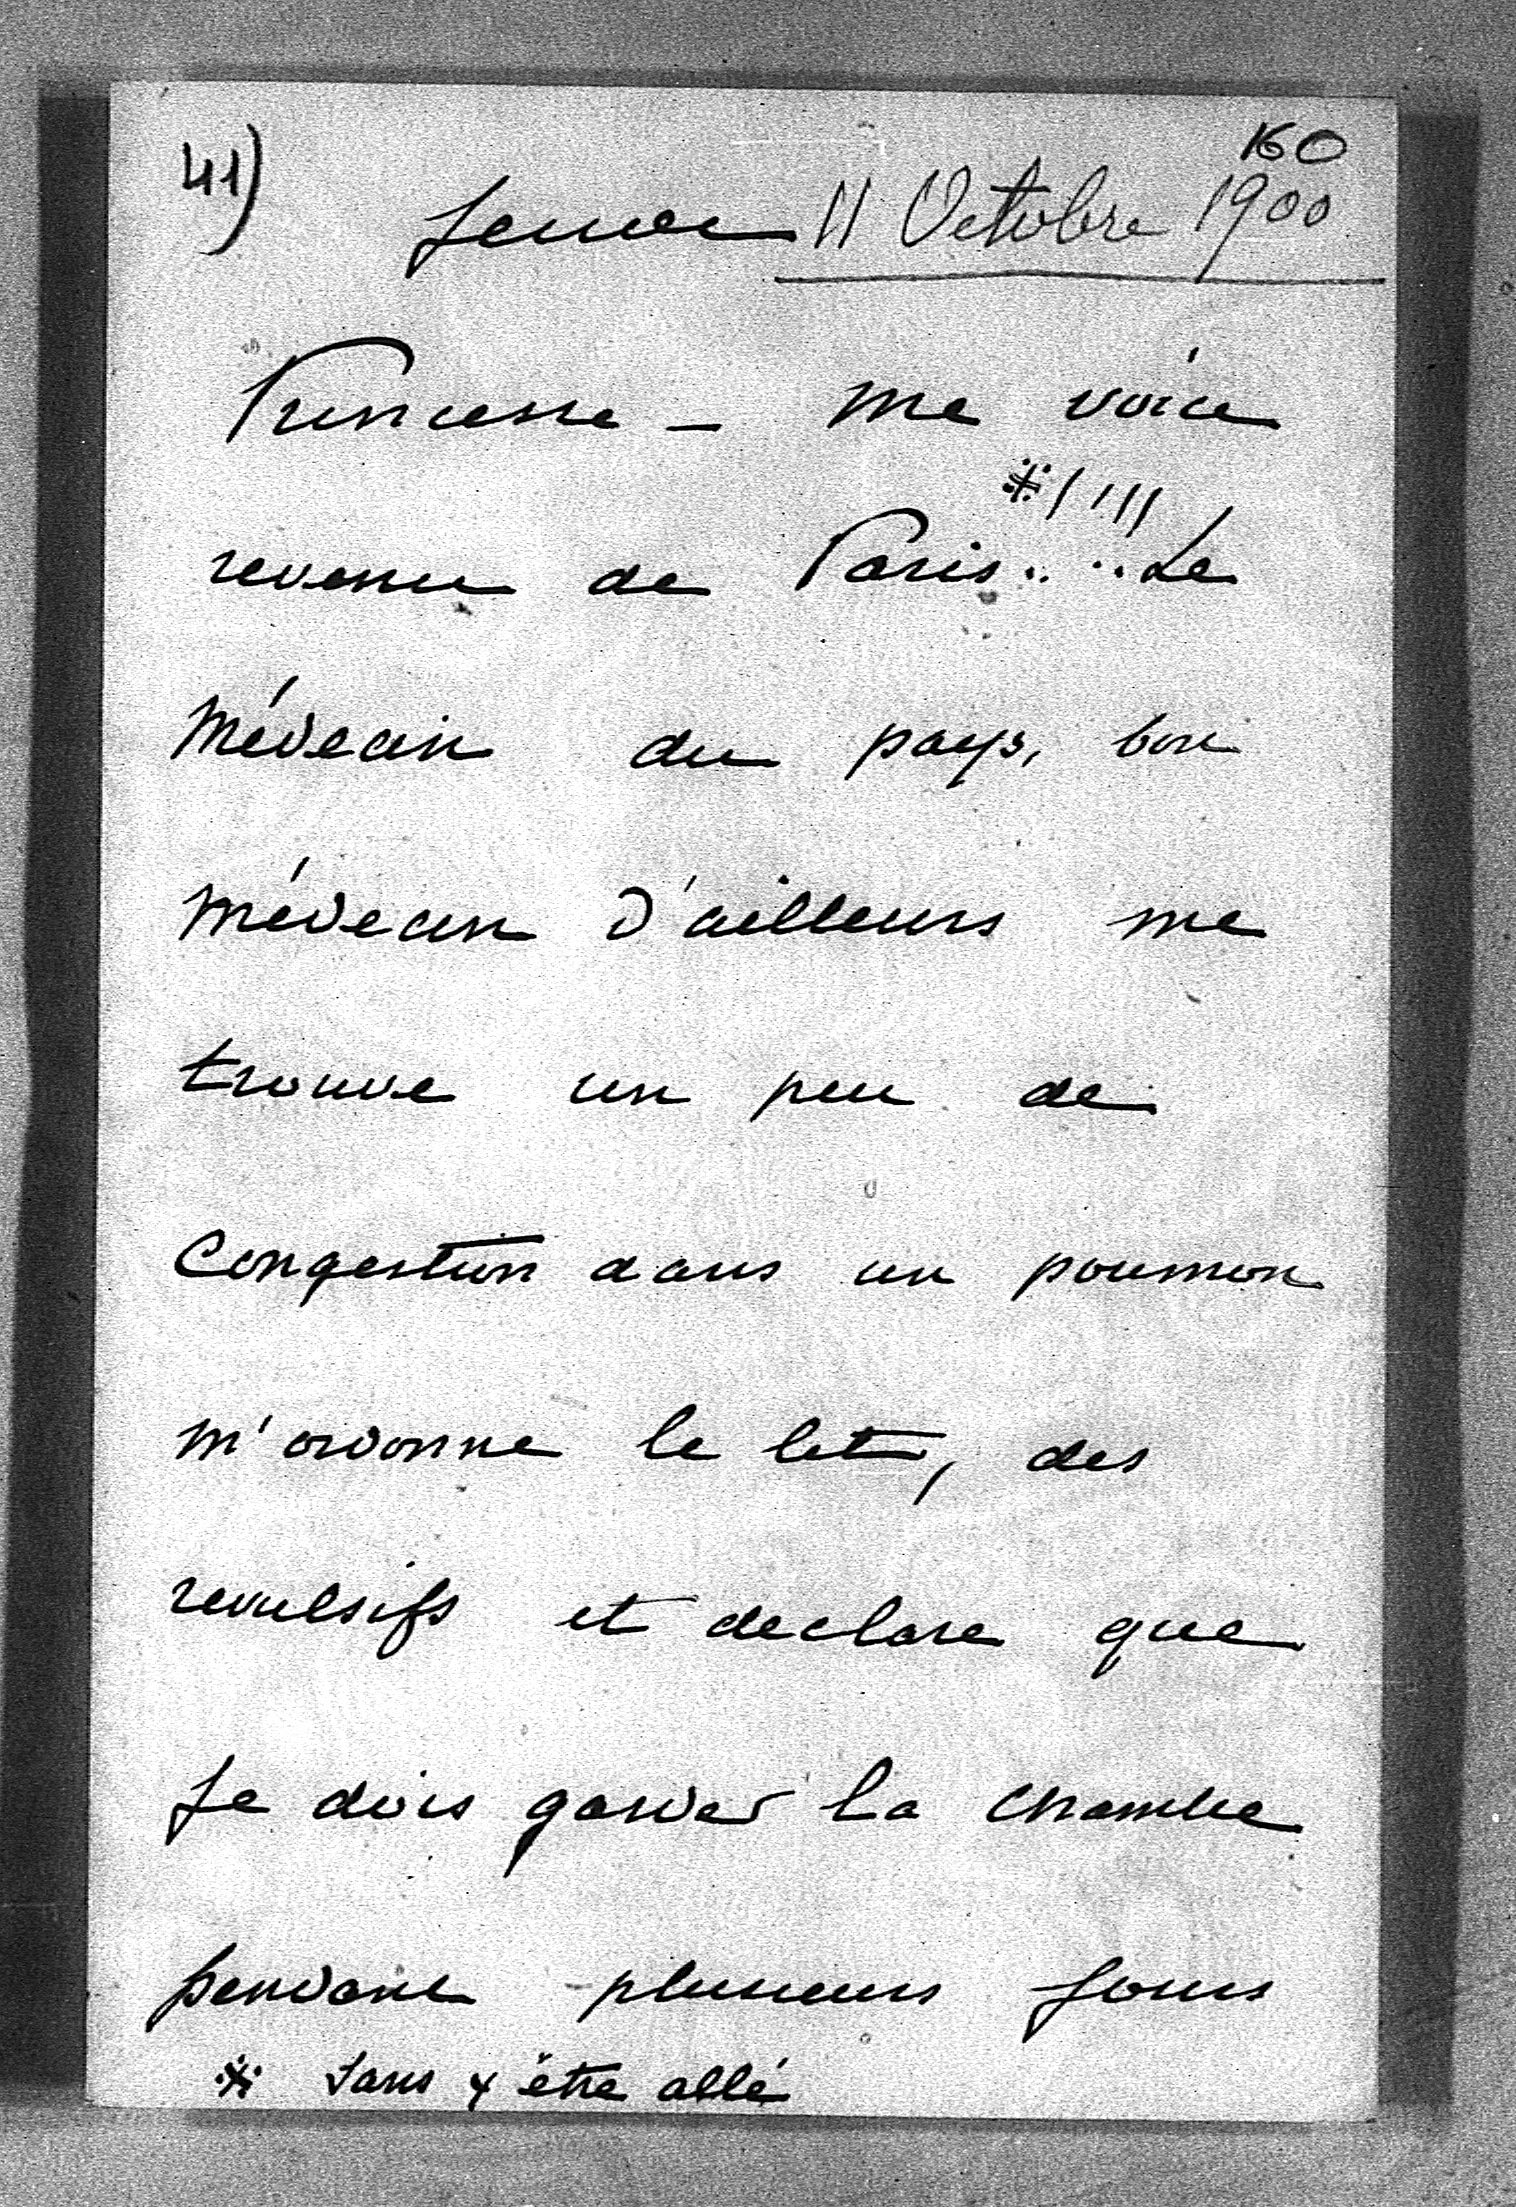 41)
160
Jeudi 11 Octobre 1900
Princesse – me voici
revenu de Paris※!!!! Le
médecin du pays, bon
médecin d'ailleurs me
trouve un peu de
congestion dans un poumon
m'ordonne le lit, des
revulsifs et declare que
je dois garder la chambre
pendant plusieurs jours
※ sans y être allé